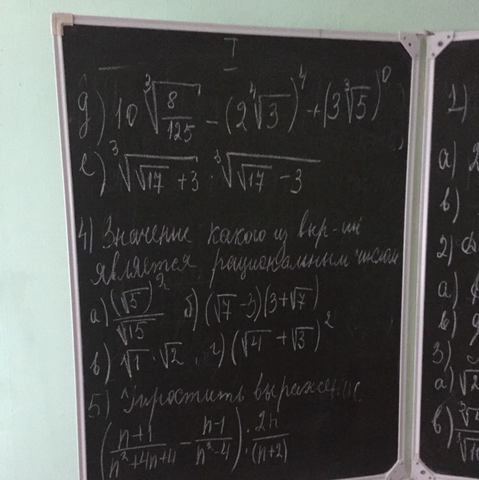 I
д) 10 ∛(8/125) - (2 ∜3)⁴ + (3 ∛5)⁰
е) ∛(√17 + 3) · ∛(√17 - 3)
4) Значение какого из выр-ий
является рациональным числом
а) (√5)²/√15 б) (√7 - 3)(3 + √7)
в) √1 · √2 г) (√4 + √3)²
5) Упростить выражение
((n+1)/(n²+4n+4) - (n-1)/(n²-4)) : 2n/(n+2)
1)
а) 2
в)
2)
а)
в)
3)
а) √2
в)